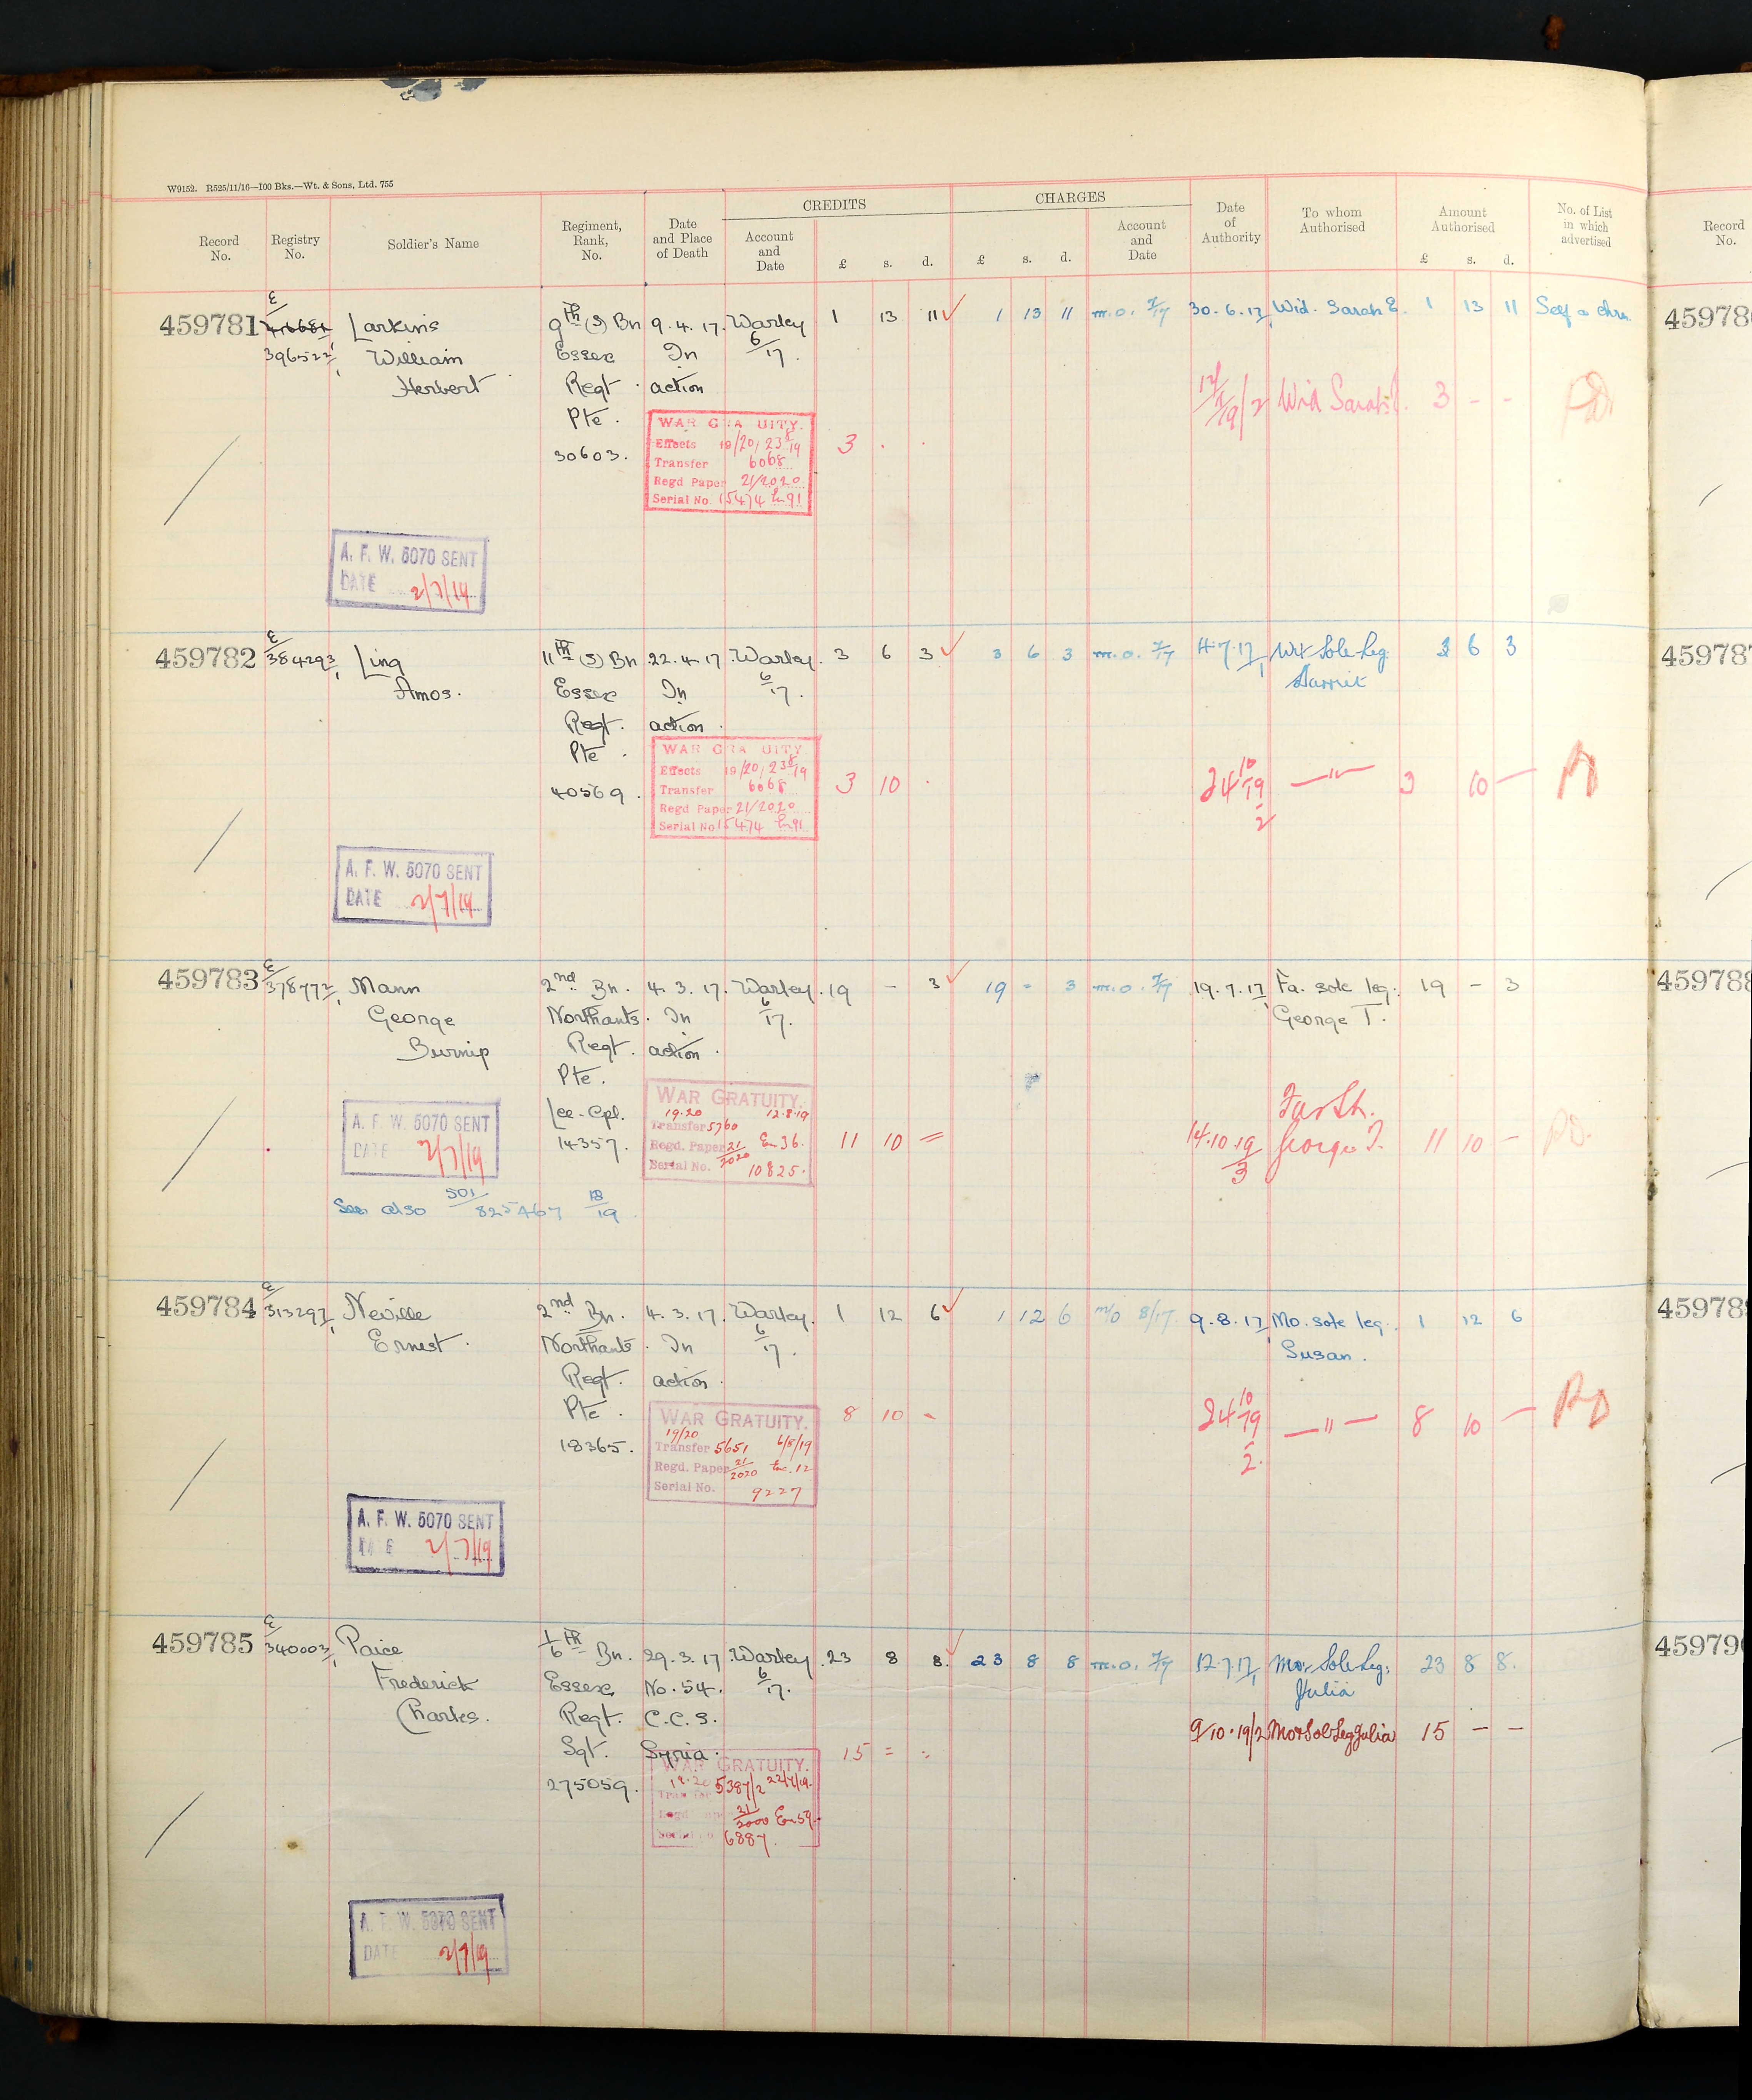 W9152. R525/11/16—100 Bks.—Wt. & Sons, Ltd. 755
Record No.
Registry No.
Soldier's Name
Regiment, Rank, No.
Date and Place of Death
CREDITS
Account and Date
£ s. d.
CHARGES
£ s. d.
Account and Date
Date of Authority
To whom Authorised
Amount Authorised
£ s. d.
No. of List in which advertised
Record No.
459781 E/ 416681 Larkins 9th (S) Bn 9.4.17. Warley 1 13 11 1 13 11 m.o. 7/17 30.6.17 Wid. Sarah E. 1 13 11 Self & chn.
396522 William Essex In 6/17.
Herbert Regt action
Pte.
30603.
WAR GRATUITY.
Effects 19/20, 23/8/19
Transfer 6068
Regd Paper 21/2020
Serial No. 15474 En 91
3 . .
Wid Sarah E. 3 - -
A. F. W. 5070 SENT
DATE 2/7/19
459782 E/384293 Ling 11th (S) Bn 22.4.17. Warley. 3 6 3 3 6 3 m.o. 7/17 4.7.17 Wid Sole Leg. 3 6 3
Amos. Essex In 6/17. Harriet
Regt. action.
Pte.
40569.
WAR GRATUITY
Effects 19/20, 23/8/19
Transfer 6068
Regd Paper 21/2020
Serial No 15474 En 91
3 10 .
24 10/19 2 —"— 3 10 —
A. F. W. 5070 SENT
DATE 2/7/19
459783 E/378772 Mann 2nd Bn. 4.3.17. Warley. 19 - 3 19 - 3 m.o. 7/17 19.7.17 Fa. sole leg. 19 - 3
George Northants. In 6/17. George T.
Burnip Regt. action.
Pte.
Lce-Cpl.
14357.
WAR GRATUITY.
19.20 12.8.19
Transfer 5760
Regd. Paper 21/2020 En 36.
Serial No. 10825.
11 10 =
Fath.
14.10.19/3 George T. 11 10 - PD.
A. F. W. 5070 SENT
DATE 2/7/19
See also 501/825467 18/19
459784 E/313297 Neville 2nd Bn. 4.3.17. Warley. 1 12 6 1 12 6 m/o 8/17 9.8.17 Mo. sole leg. 1 12 6
Ernest. Northants. In 6/17. Susan.
Regt. action.
Pte.
18365.
WAR GRATUITY.
19/20
Transfer 5651 6/8/19
Regd. Paper 21/2020 En. 12
Serial No. 9227
8 10 -
24 10/19 2. —"— 8 10 — PD
A. F. W. 5070 SENT
DATE 2/7/19
459785 E/340003 Paice 1/6th Bn. 29.3.17. Warley. 23 8 8. 23 8 8 m.o. 7/17 12.7.17 Mor Sole Leg. 23 8 8.
Frederick Essex No. 54. 6/17. Julia
Charles. Regt. C.C.S.
Sgt. Syria.
275059.
9/10.19/2 Mor Sol Leg Julia 15 - -
WAR GRATUITY.
19.20 5387/2 22/7/19.
Transfer
Regd. Paper 21/2000 En 59.
Serial No. 6887.
15 = =
A. F. W. 5070 SENT
DATE 2/7/19